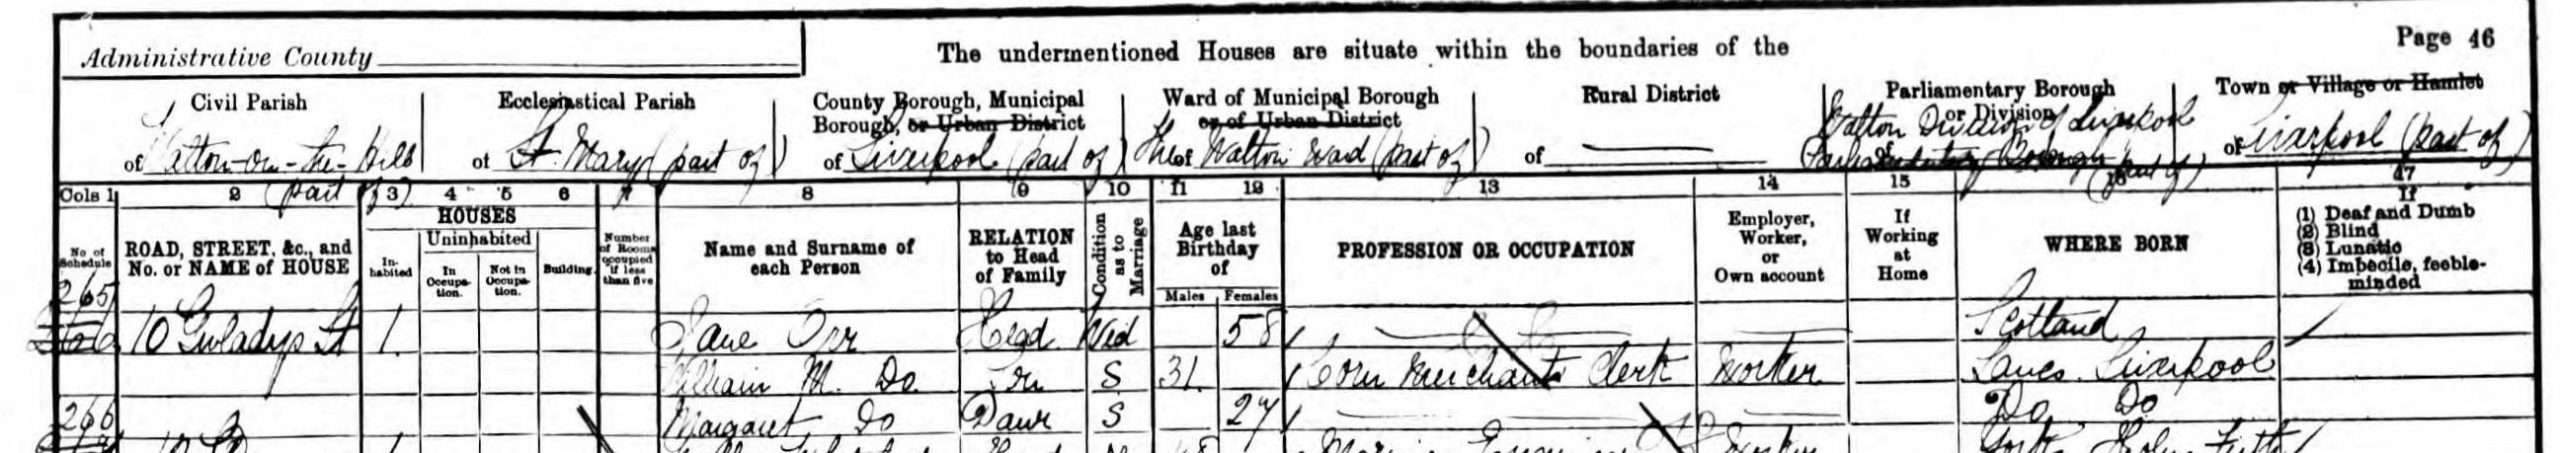 Page 46
Administrative County
The undermentioned Houses are situate within the boundaries of the
Civil Parish
of Walton-on-the-Hill (part of)
Ecclesiastical Parish
of St. Mary (part of)
County Borough, Municipal Borough, or Urban District
of Liverpool (part of)
Ward of Municipal Borough or of Urban District
of Walton Ward (part of)
Rural District
of
Parliamentary Borough or Division
of Walton Division of Liverpool Parliamentary Borough (part of)
Town or Village or Hamlet
of Liverpool (part of)
Cols 1 2 3 4 5 6 7 8 9 10 11 12 13 14 15 16 17
No of Schedule
ROAD, STREET, &c., and No. or NAME of HOUSE
HOUSES
In-habited
Uninhabited
In Occupa-tion.
Not in Occupa-tion.
Building.
Number of Rooms occupied if less than five
Name and Surname of each Person
RELATION to Head of Family
Condition as to Marriage
Age last Birthday of
Males Females
PROFESSION OR OCCUPATION
Employer, Worker, or Own account
If Working at Home
WHERE BORN
If
(1) Deaf and Dumb
(2) Blind
(3) Lunatic
(4) Imbecile, feeble-minded
265 10 Gwladys St 1 Jane Orr Head Wid 58 Scotland
William M. Do Son S 31 Corn Merchants Clerk Worker Lancs. Liverpool
Margaret Do Daur S 27 Do Do
266